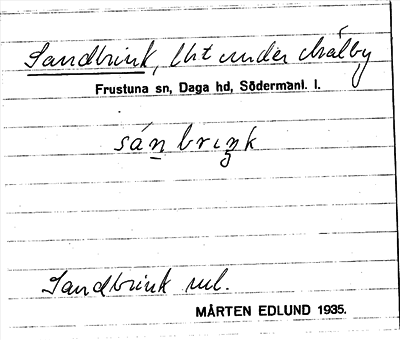 Sandbrink, lht under Mälby
Frustuna sn, Daga hd, Södermanl. l.
sá̱n briŋk
Sandbrink ml.
MÅRTEN EDLUND 1935.